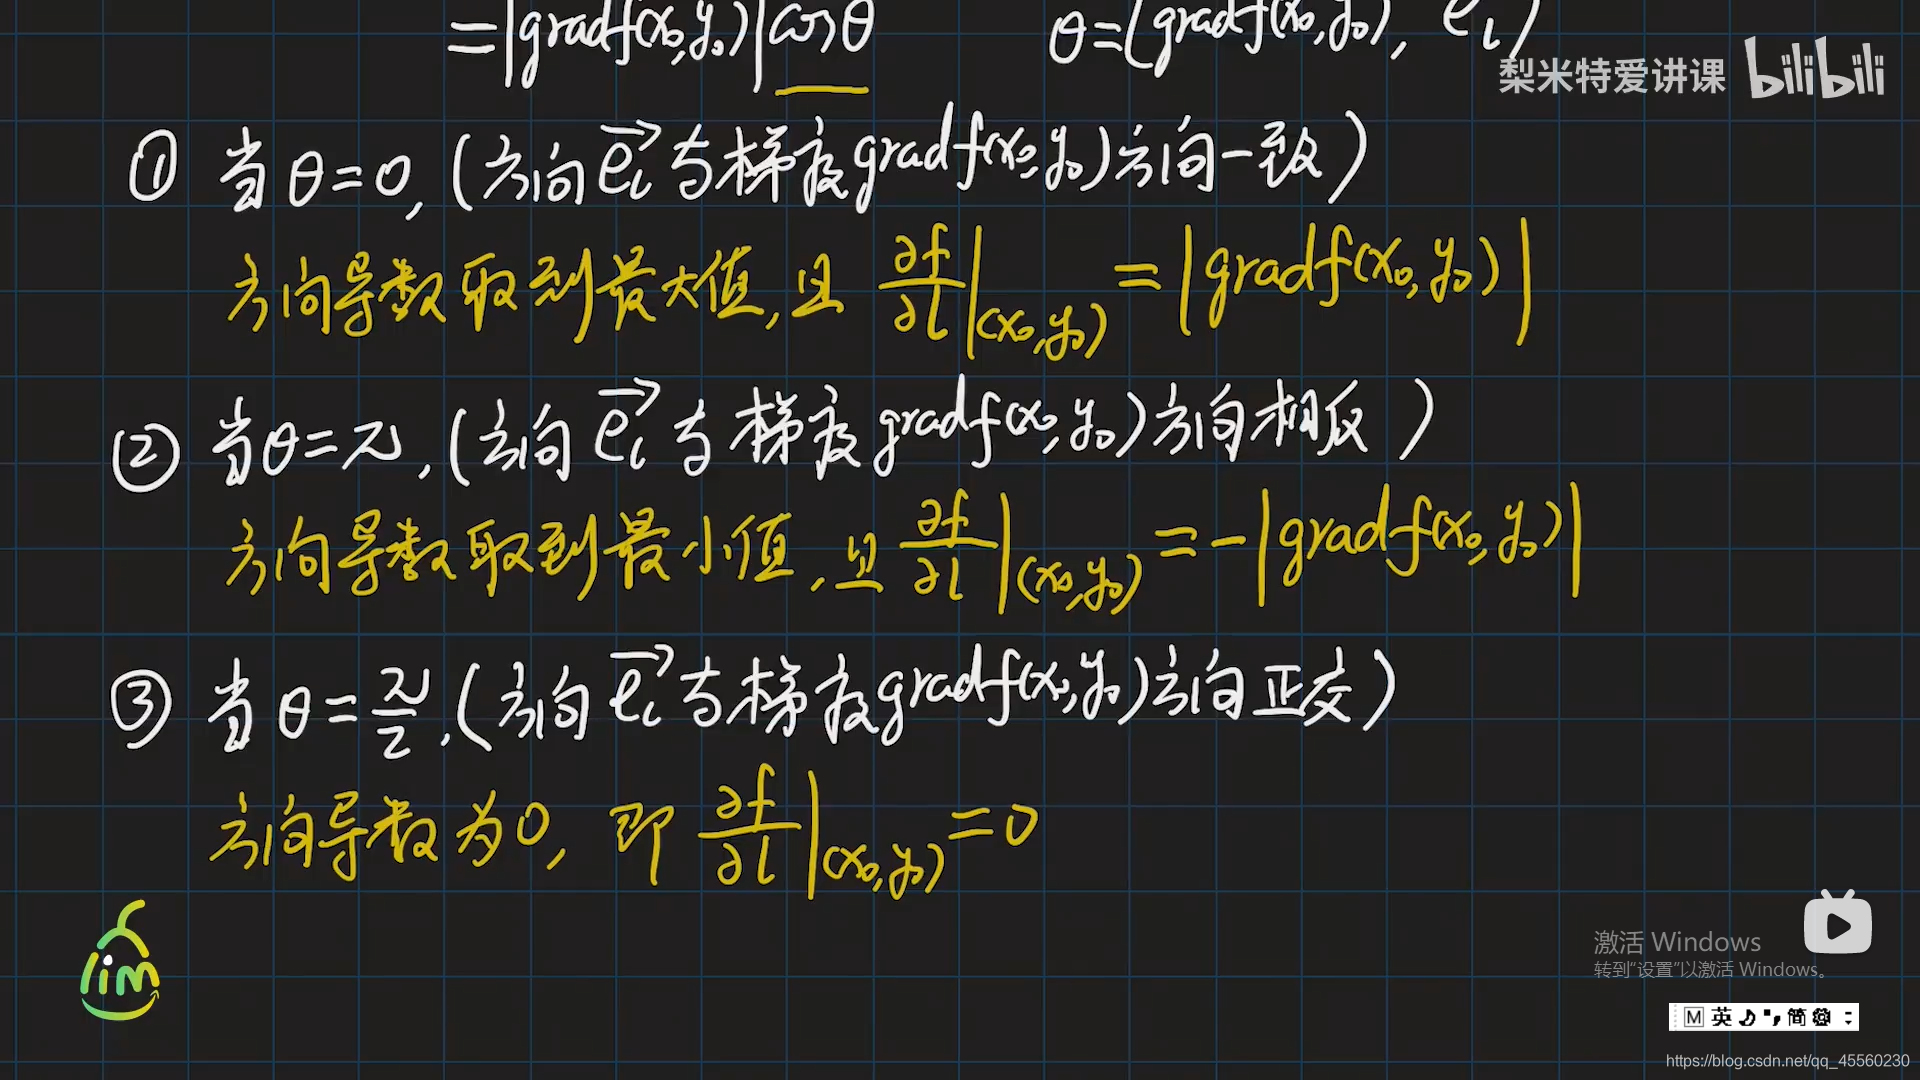 =|gradf(x₀,y₀)|cosθ θ=(gradf(x₀,y₀), e_l)
梨米特爱讲课 bilibili
① 当θ=0,(方向e_l→与梯度gradf(x₀,y₀)方向一致)
方向导数取到最大值,且 ∂f/∂l|(x₀,y₀)=|gradf(x₀,y₀)|
② 当θ=π,(方向e_l→与梯度gradf(x₀,y₀)方向相反)
方向导数取到最小值,且 ∂f/∂l|(x₀,y₀)=-|gradf(x₀,y₀)|
③ 当θ=π/2,(方向e_l→与梯度gradf(x₀,y₀)方向正交)
方向导数为0, 即 ∂f/∂l|(x₀,y₀)=0
lim
激活 Windows
转到“设置”以激活 Windows。
M 英 简
https://blog.csdn.net/qq_45560230